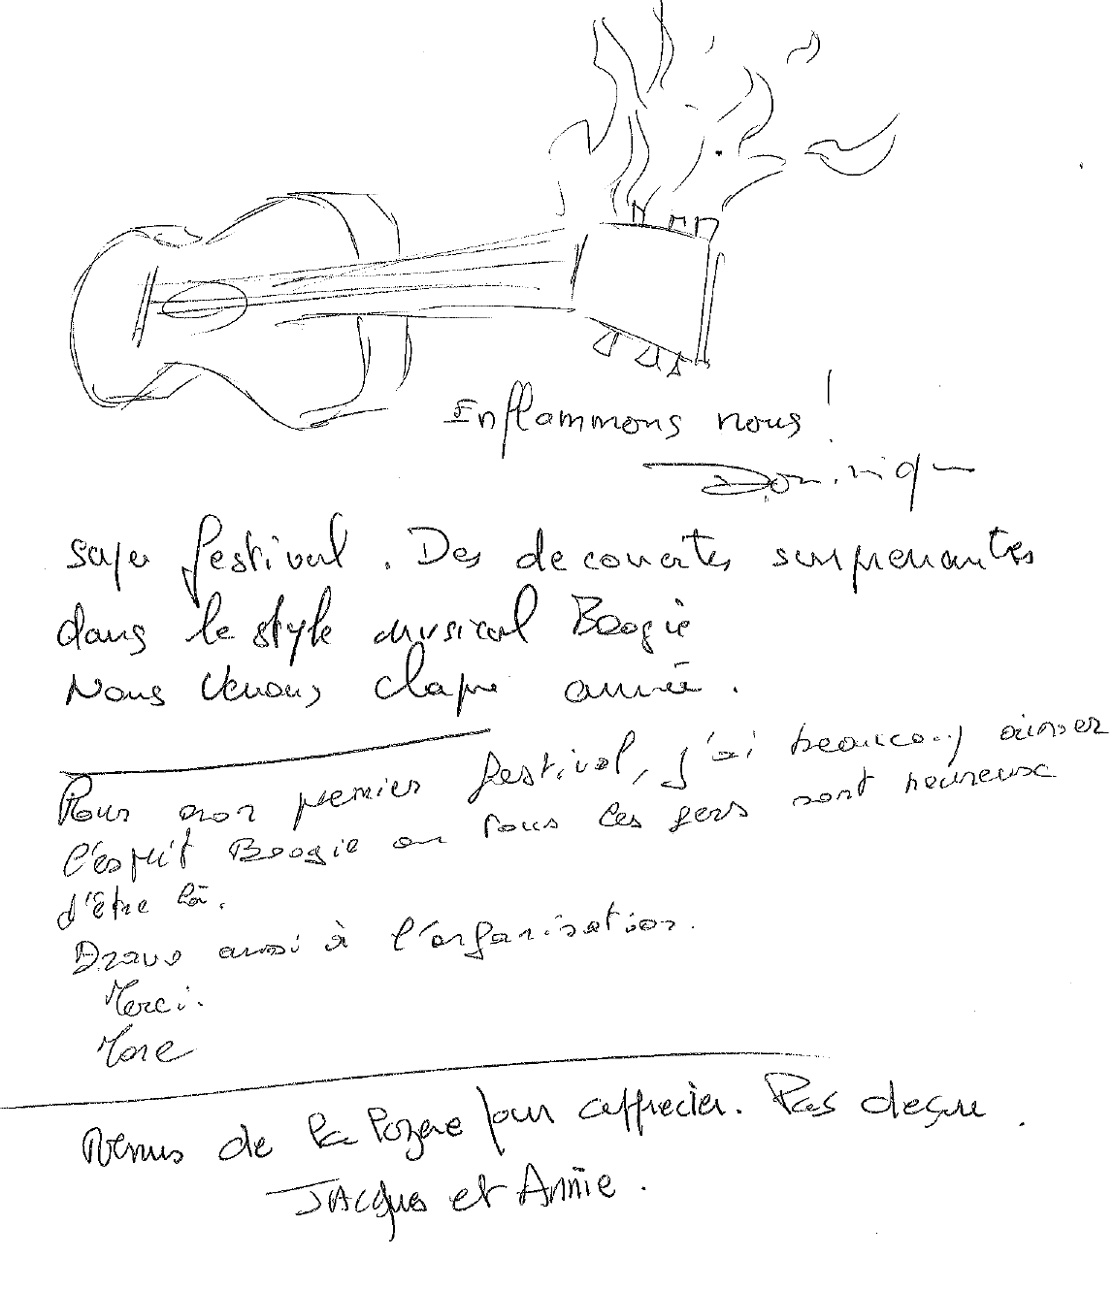 Enflammons nous !
Dominique
super festival. Des decouvertes surprenantes
dans le style musical Boogie
Nous venons chaque année.
Pour mon premier festival, j'ai beaucoup aimer
l'esprit Boogie ou tous les gens sont heureux
d'être là.
Bravo aussi à l'organisation.
Merci.
Venus de la Lozere pour apprecier. Pas deçu.
JAcques et Annie.